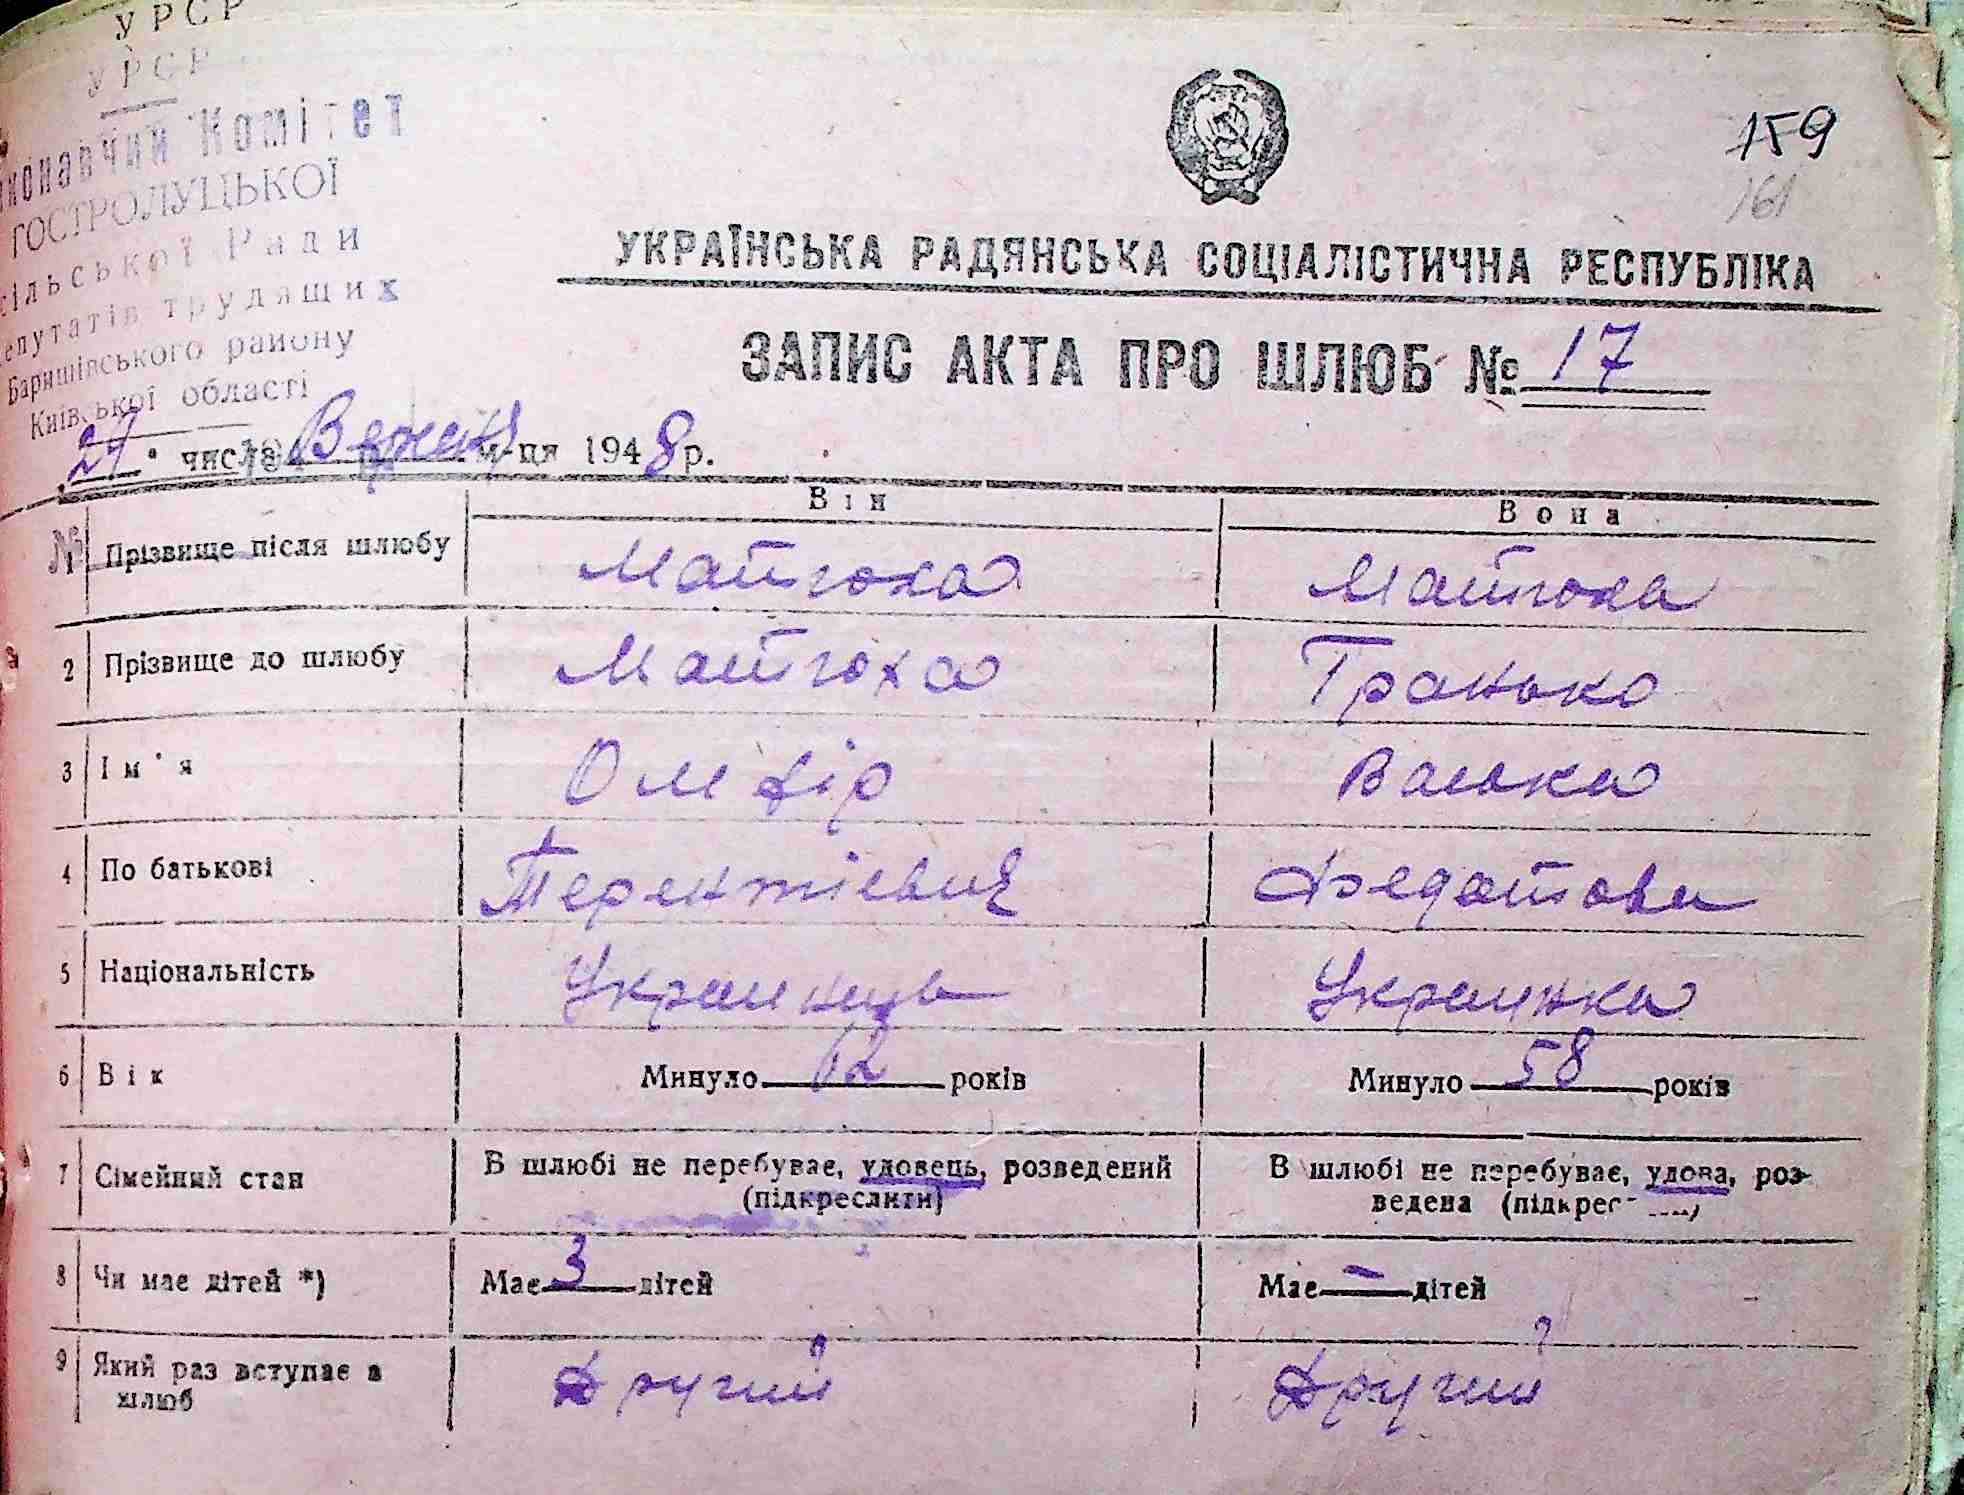 УРСР
УРСР
Комітет
ГОСТРОЛУЦЬКОЇ
сільської Ради
депутатів трудящих
Баришівського району
Київської області
159
161
УКРАЇНСЬКА РАДЯНСЬКА СОЦІАЛІСТИЧНА РЕСПУБЛІКА
ЗАПИС АКТА ПРО ШЛЮБ № 17
числа м-ця 1948 р.
Він Вона
1 Прізвище після шлюбу
2 Прізвище до шлюбу
3 Ім'я Вовка
4 По батькові Терентієвич Федотовн
5 Національність Украинець Украинка
6 Вік Минуло 62 років Минуло 58 років
7 Сімейный стан В шлюбі не перебуває, удовець, розведений (підкреслити) В шлюбі не перебуває, удова, роз-
ведена
8 Чи має дітей *) Має 3 дітей Має — дітей
9 Який раз вступає в Другий Другий
шлюб